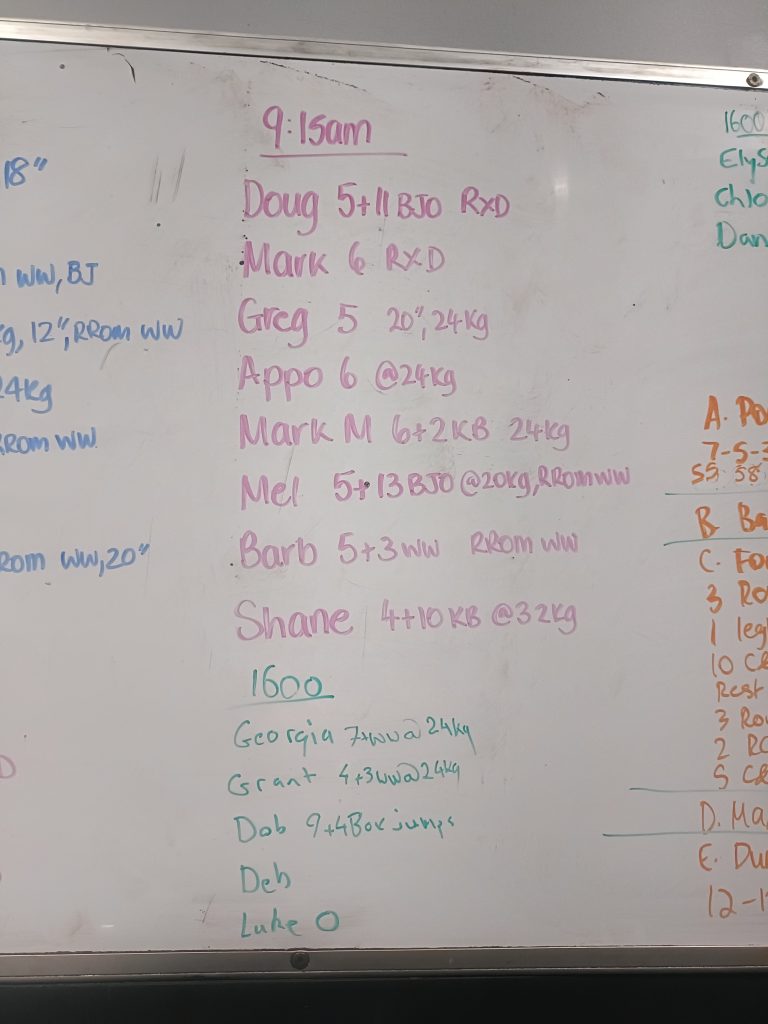 18"
WW, BJ
g, 12", RROM WW
24kg
RROM WW
ROM WW, 20"
D
9:15am
Doug 5+11 BJO RXD
Mark 6 RXD
Greg 5 20", 24kg
Appo 6 @24kg
Mark M 6+2KB 24kg
Mel 5+13 BJO @20kg, RROM WW
Barb 5+3 WW RROM WW
Shane 4+10 KB @32kg
1600
Georgia 7+WW@24kg
Grant 4+3WW@24kg
Dob 9+4 Box jumps
Deb
Luke O
1600
Elys
Chlo
Dan
A. Po
7-5-3
55 58
B. Ba
C. Fo
3 Ro
1 leg
10 C
Rest
3 Rou
2 RC
5 C
D. Ma
E. Du
12-1